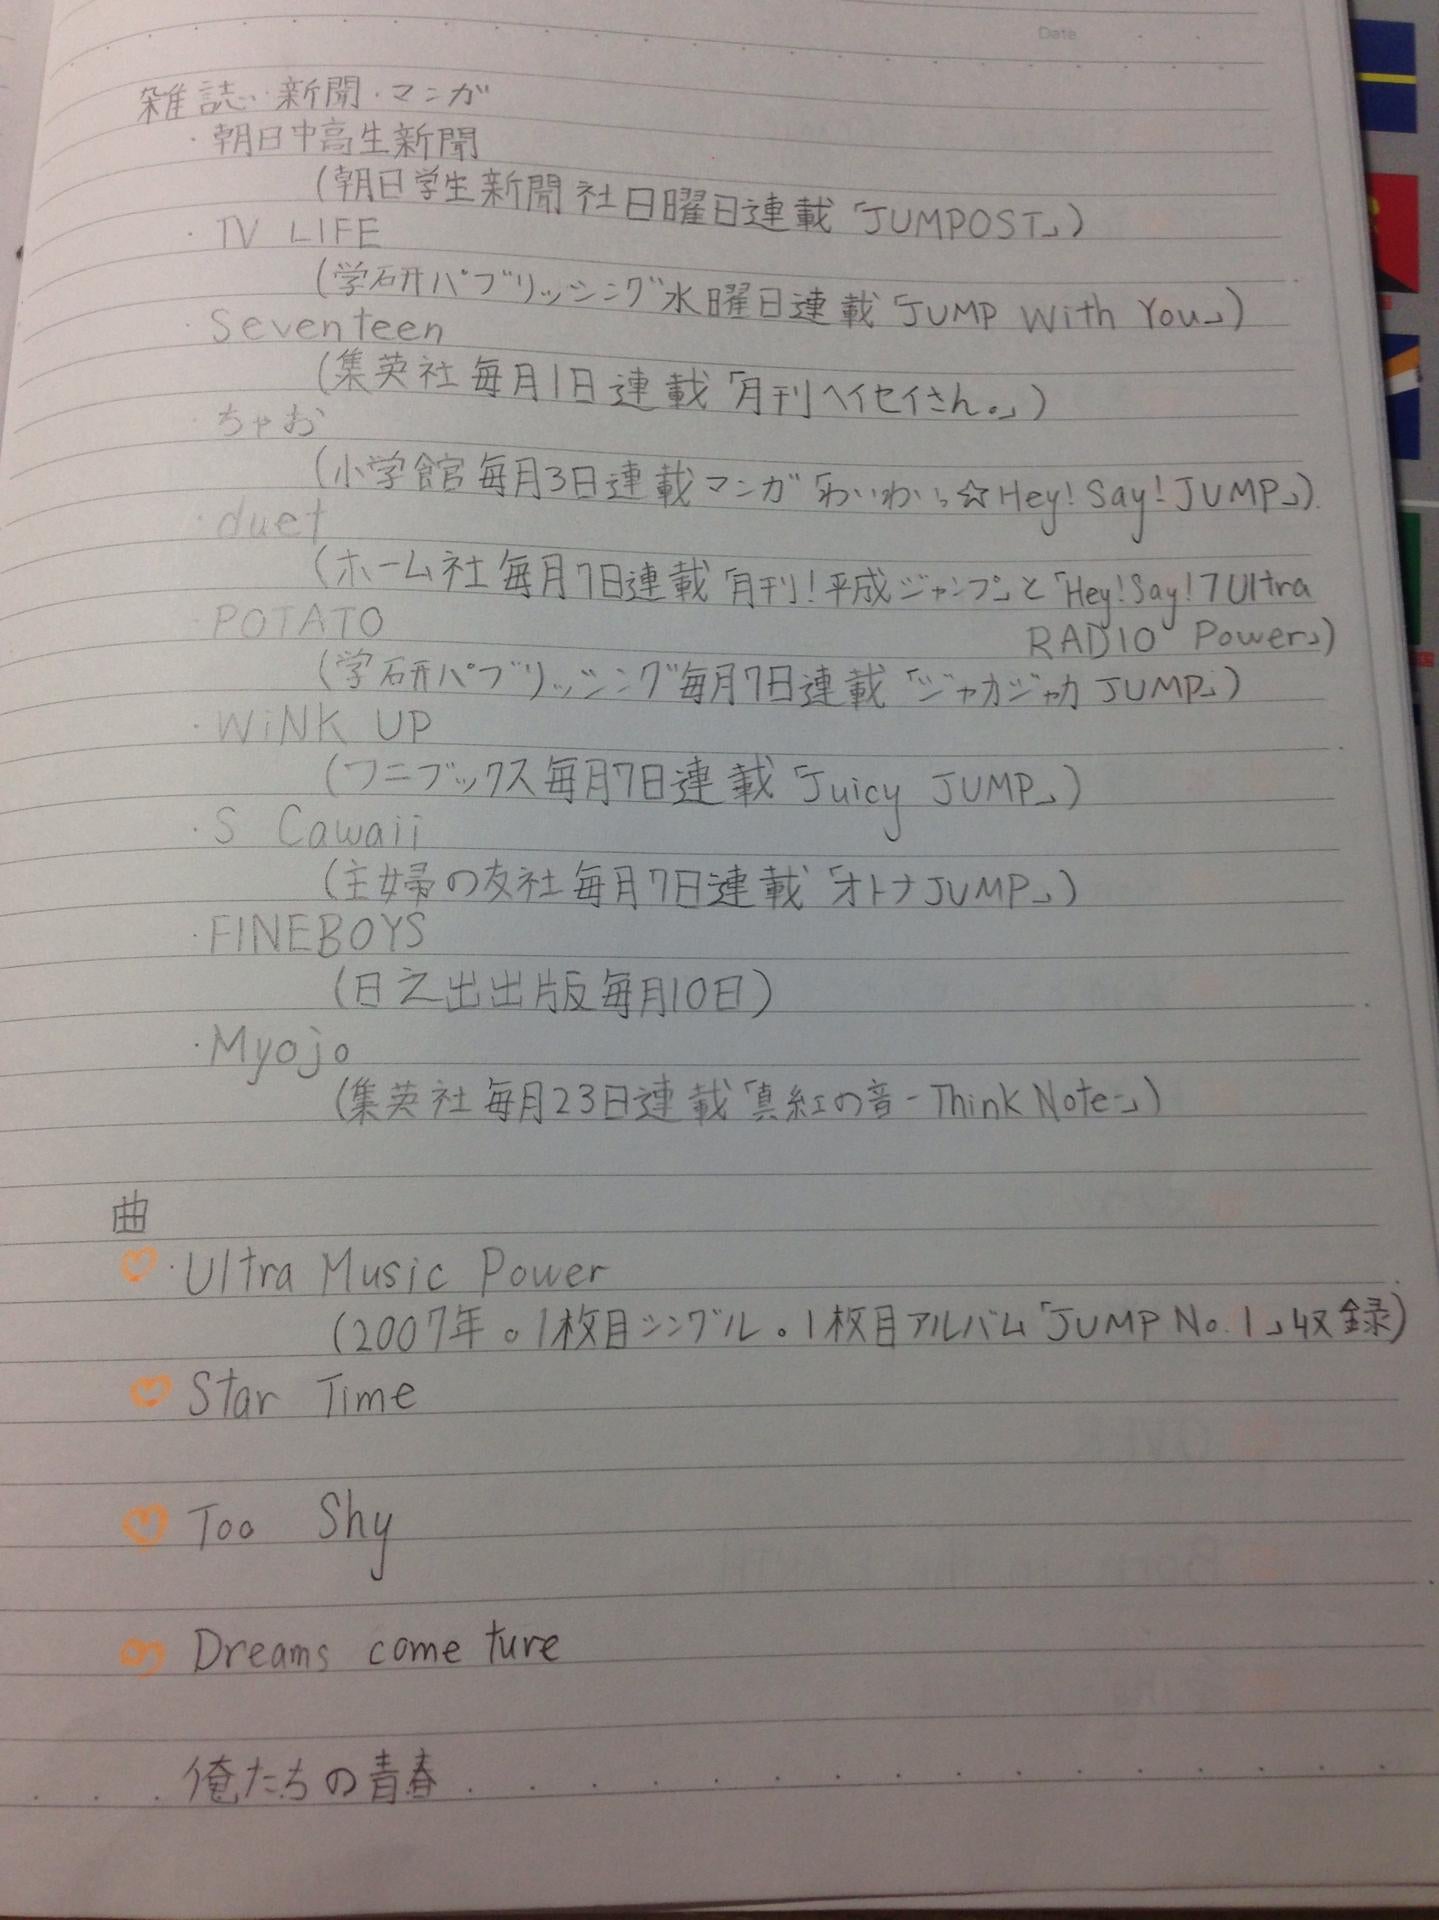 Date
雑誌・新聞・マンガ
・朝日中高生新聞
(朝日学生新聞社日曜日連載「JUMPOST」)
・TV LIFE
(学研パブリッシング水曜日連載「JUMP With You」)
・Seventeen
(集英社毎月1日連載「月刊ヘイセイさん。」)
・ちゃお
(小学館毎月3日連載マンガ「わいわい☆Hey!Say!JUMP」)
・duet
(ホーム社毎月7日連載「月刊!平成ジャンプ」と「Hey!Say!7Ultra
RADIO Power」)
・POTATO
(学研パブリッシング毎月7日連載「ジャカジャカJUMP」)
・WiNK UP
(ワニブックス毎月7日連載「Juicy JUMP」)
・S Cawaii
(主婦の友社毎月7日連載「オトナJUMP」)
・FINEBOYS
(日之出出版毎月10日)
・Myojo
(集英社毎月23日連載「真紅の音-Think Note-」)
曲
♡・Ultra Music Power
(2007年。1枚目シングル。1枚目アルバム「JUMP No.1」収録)
♡Star Time
♡Too Shy
Dreams come ture
俺たちの青春